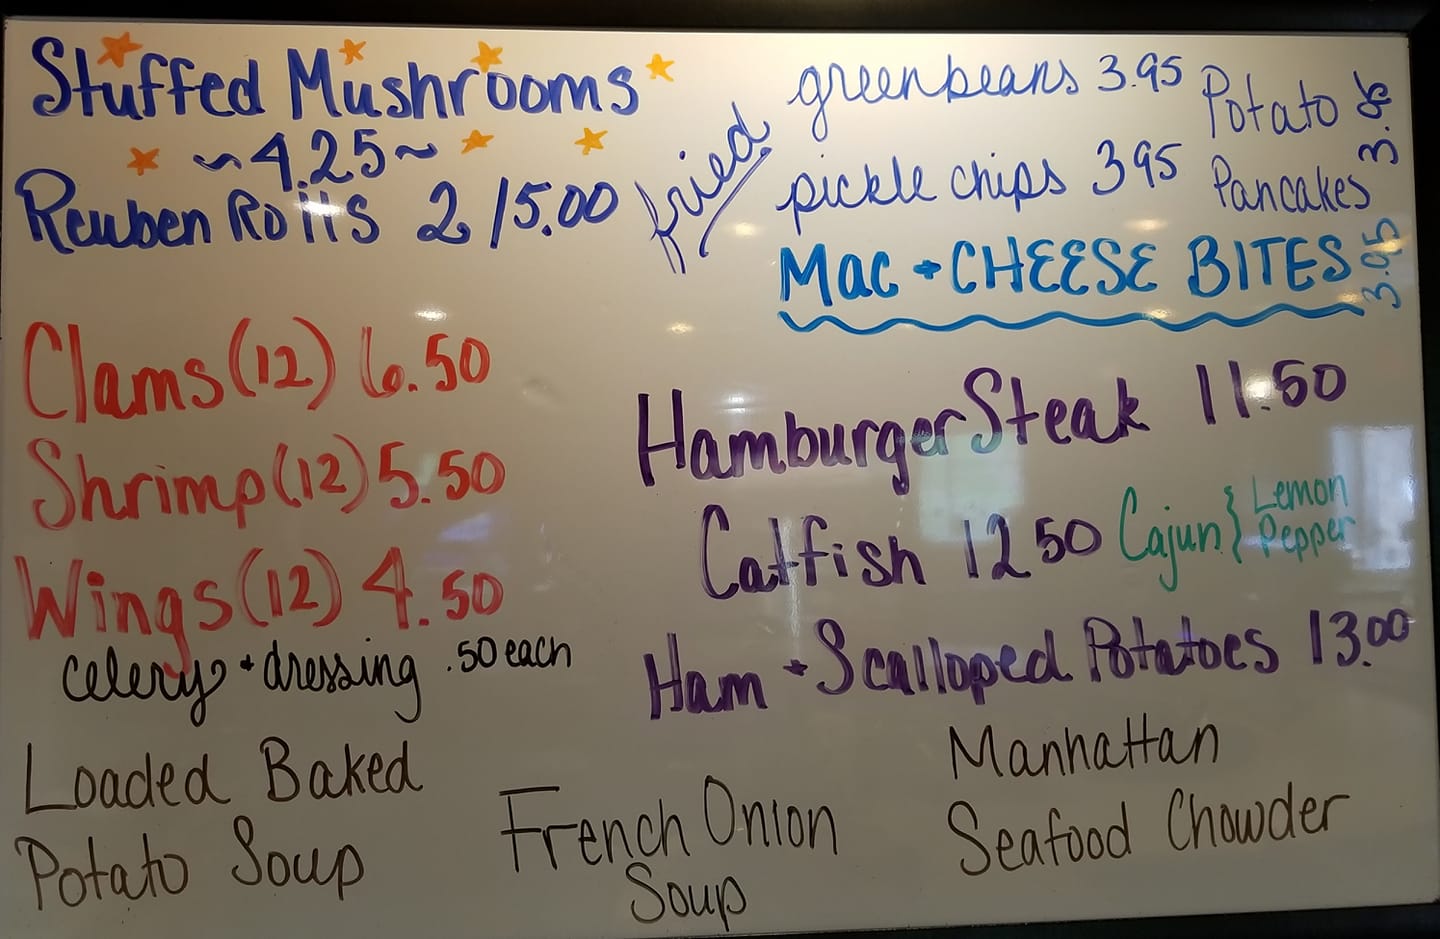 Stuffed Mushrooms
~4.25~
Reuben Rolls 2/5.00
fried
greenbeans 3.95
pickle chips 3 95
Potato
Pancakes
MAC + CHEESE BITES 3.95
Clams (12) 6.50
Shrimp (12) 5.50
Wings (12) 4.50
celery + dressing .50 each
Hamburger Steak 11.50
Catfish 12 50 Cajun } Lemon
Pepper
Ham + Scalloped Potatoes 13.00
Loaded Baked
Potato Soup
French Onion
Soup
Manhattan
Seafood Chowder